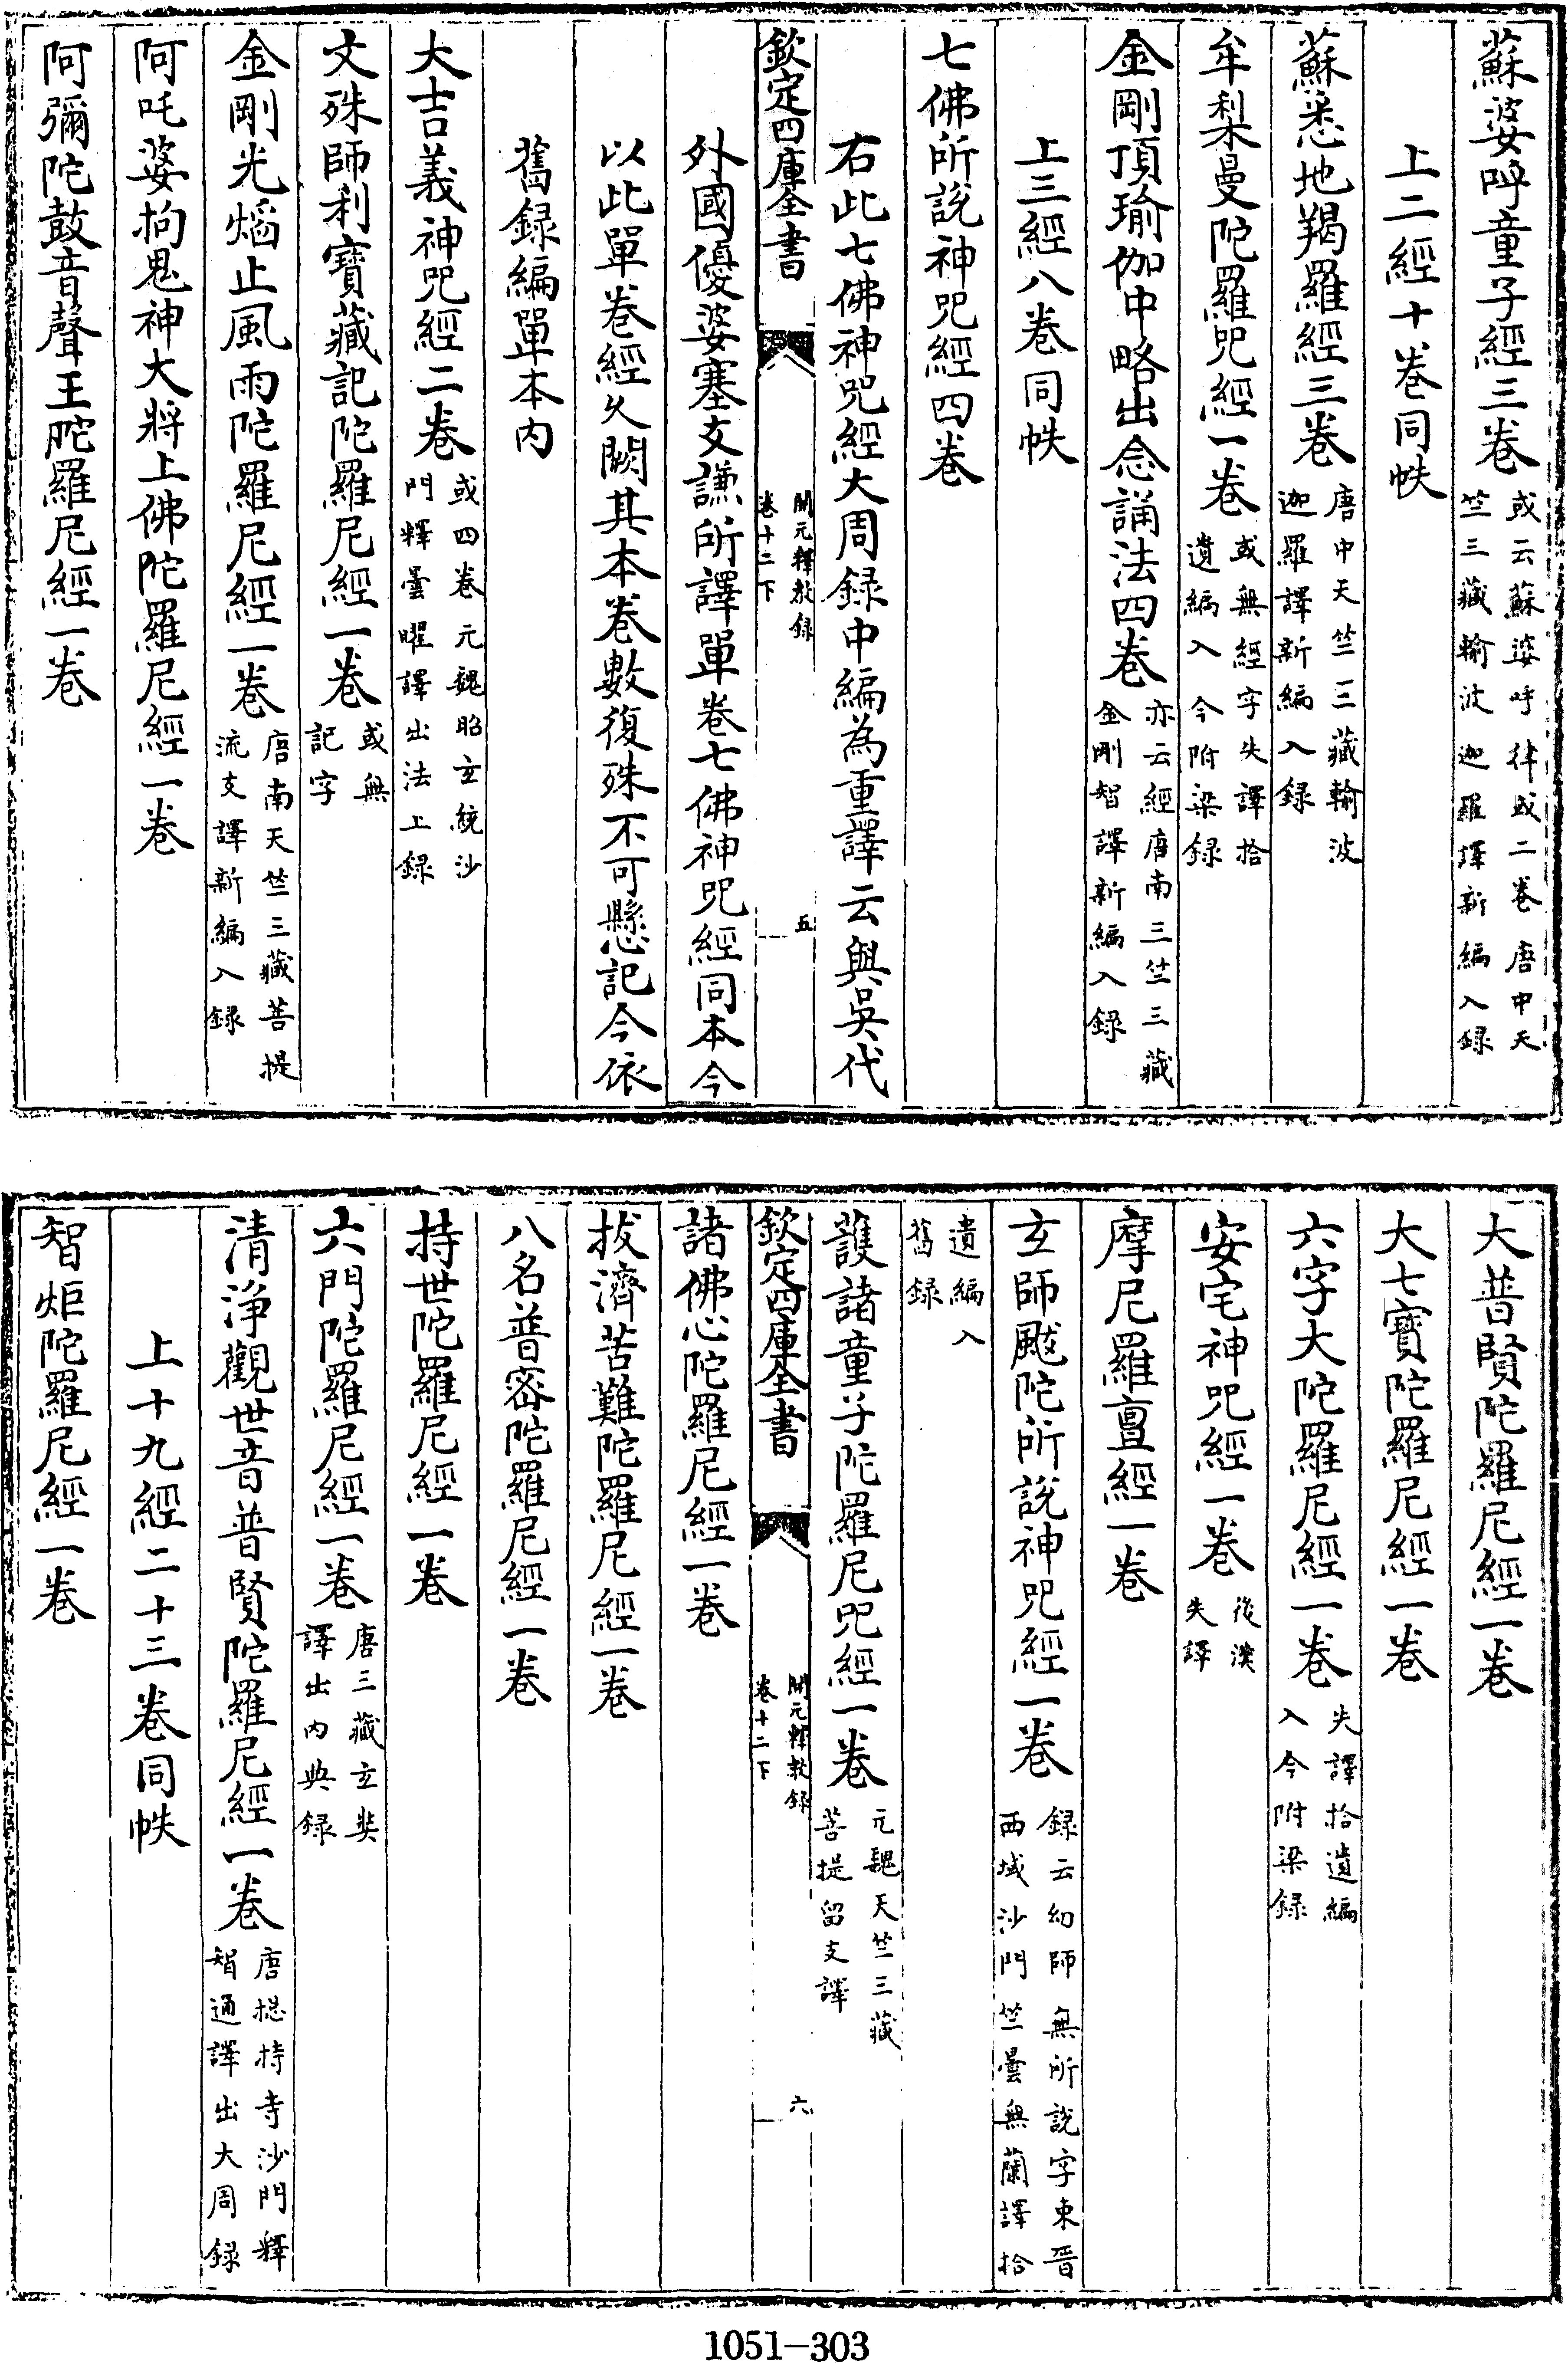 蘇婆呼童子經三卷或云蘇婆呼律或二卷唐中天竺三藏輸波迦羅譯新編入録
上二經十卷同帙
蘇悉地羯羅經三卷唐中天竺三藏輸波迦羅譯新編入録
牟梨曼陀羅咒經一卷或無經字失譯拾遺編入今附梁録
金剛頂瑜伽中略出念誦法四卷亦云經唐南三竺三藏金剛智譯新編入録
上三經八卷同帙
七佛所說神咒經四卷
右此七佛神咒經大周録中編為重譯云與吳代
欽定四庫全書
開元釋教録
卷十二下
五
外國優婆塞支謙所譯單卷七佛神咒經同本今
以此單卷經久闕其本卷數復殊不可懸記今依
舊録編單本内
大吉義神咒經二卷或四卷元魏昭玄統沙門釋曇曜譯出法上録
文殊師利寶藏記陀羅尼經一卷或無記字
金剛光熖止風雨陀羅尼經一卷唐南天竺三藏菩提流支譯新編入録
阿吒婆拘鬼神大將上佛陀羅尼經一卷
阿彌陀鼓音聲王陀羅尼經一卷
大普賢陀羅尼經一卷
大七寳陀羅尼經一卷
六字大陀羅尼經一卷失譯拾遺編入今附梁録
安宅神咒經一卷後漢失譯
摩尼羅亶經一卷
玄師颰陀所說神咒經一卷録云幻師無所說字東晉西域沙門竺曇無蘭譯拾
遺編入舊録
護諸童子陀羅尼咒經一卷元魏天竺三藏菩提留支譯
欽定四庫全書
開元釋教録
卷十二下
六
諸佛心陀羅尼經一卷
拔濟苦難陀羅尼經一卷
八名普密陀羅尼經一卷
持世陀羅尼經一卷
六門陀羅尼經一卷唐三藏玄奘譯出内典録
清淨觀世音普賢陀羅尼經一卷唐揔持寺沙門釋智通譯出大周録
上十九經二十三卷同帙
智炬陀羅尼經一卷
1051-303